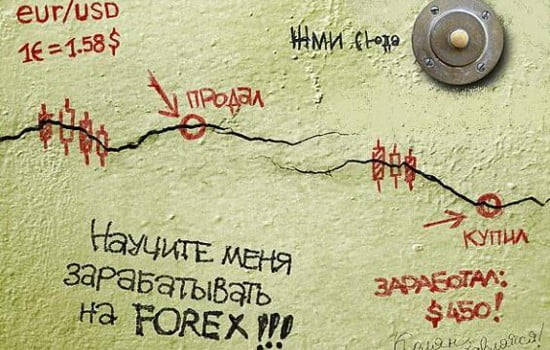 eur/usd
1€ = 1.58 $
ЖМИ сюда
ПРОДАЛ
КУПИЛ
НАУЧИТЕ МЕНЯ
ЗАРАБАТЫВАТЬ
на FOREX !!!
ЗАРАБОТАЛ:
$450!
Колян